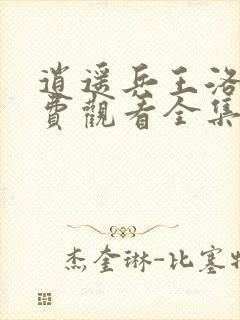 逍遥兵王洛
費觀看全集
杰奎琳-比塞特